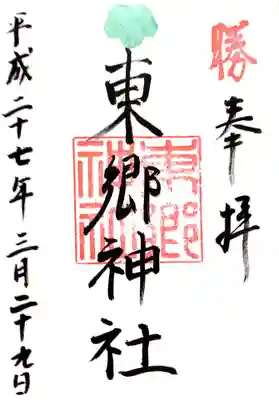 勝
奉拝
東郷神社
東郷神社
平成二十七年三月二十九日